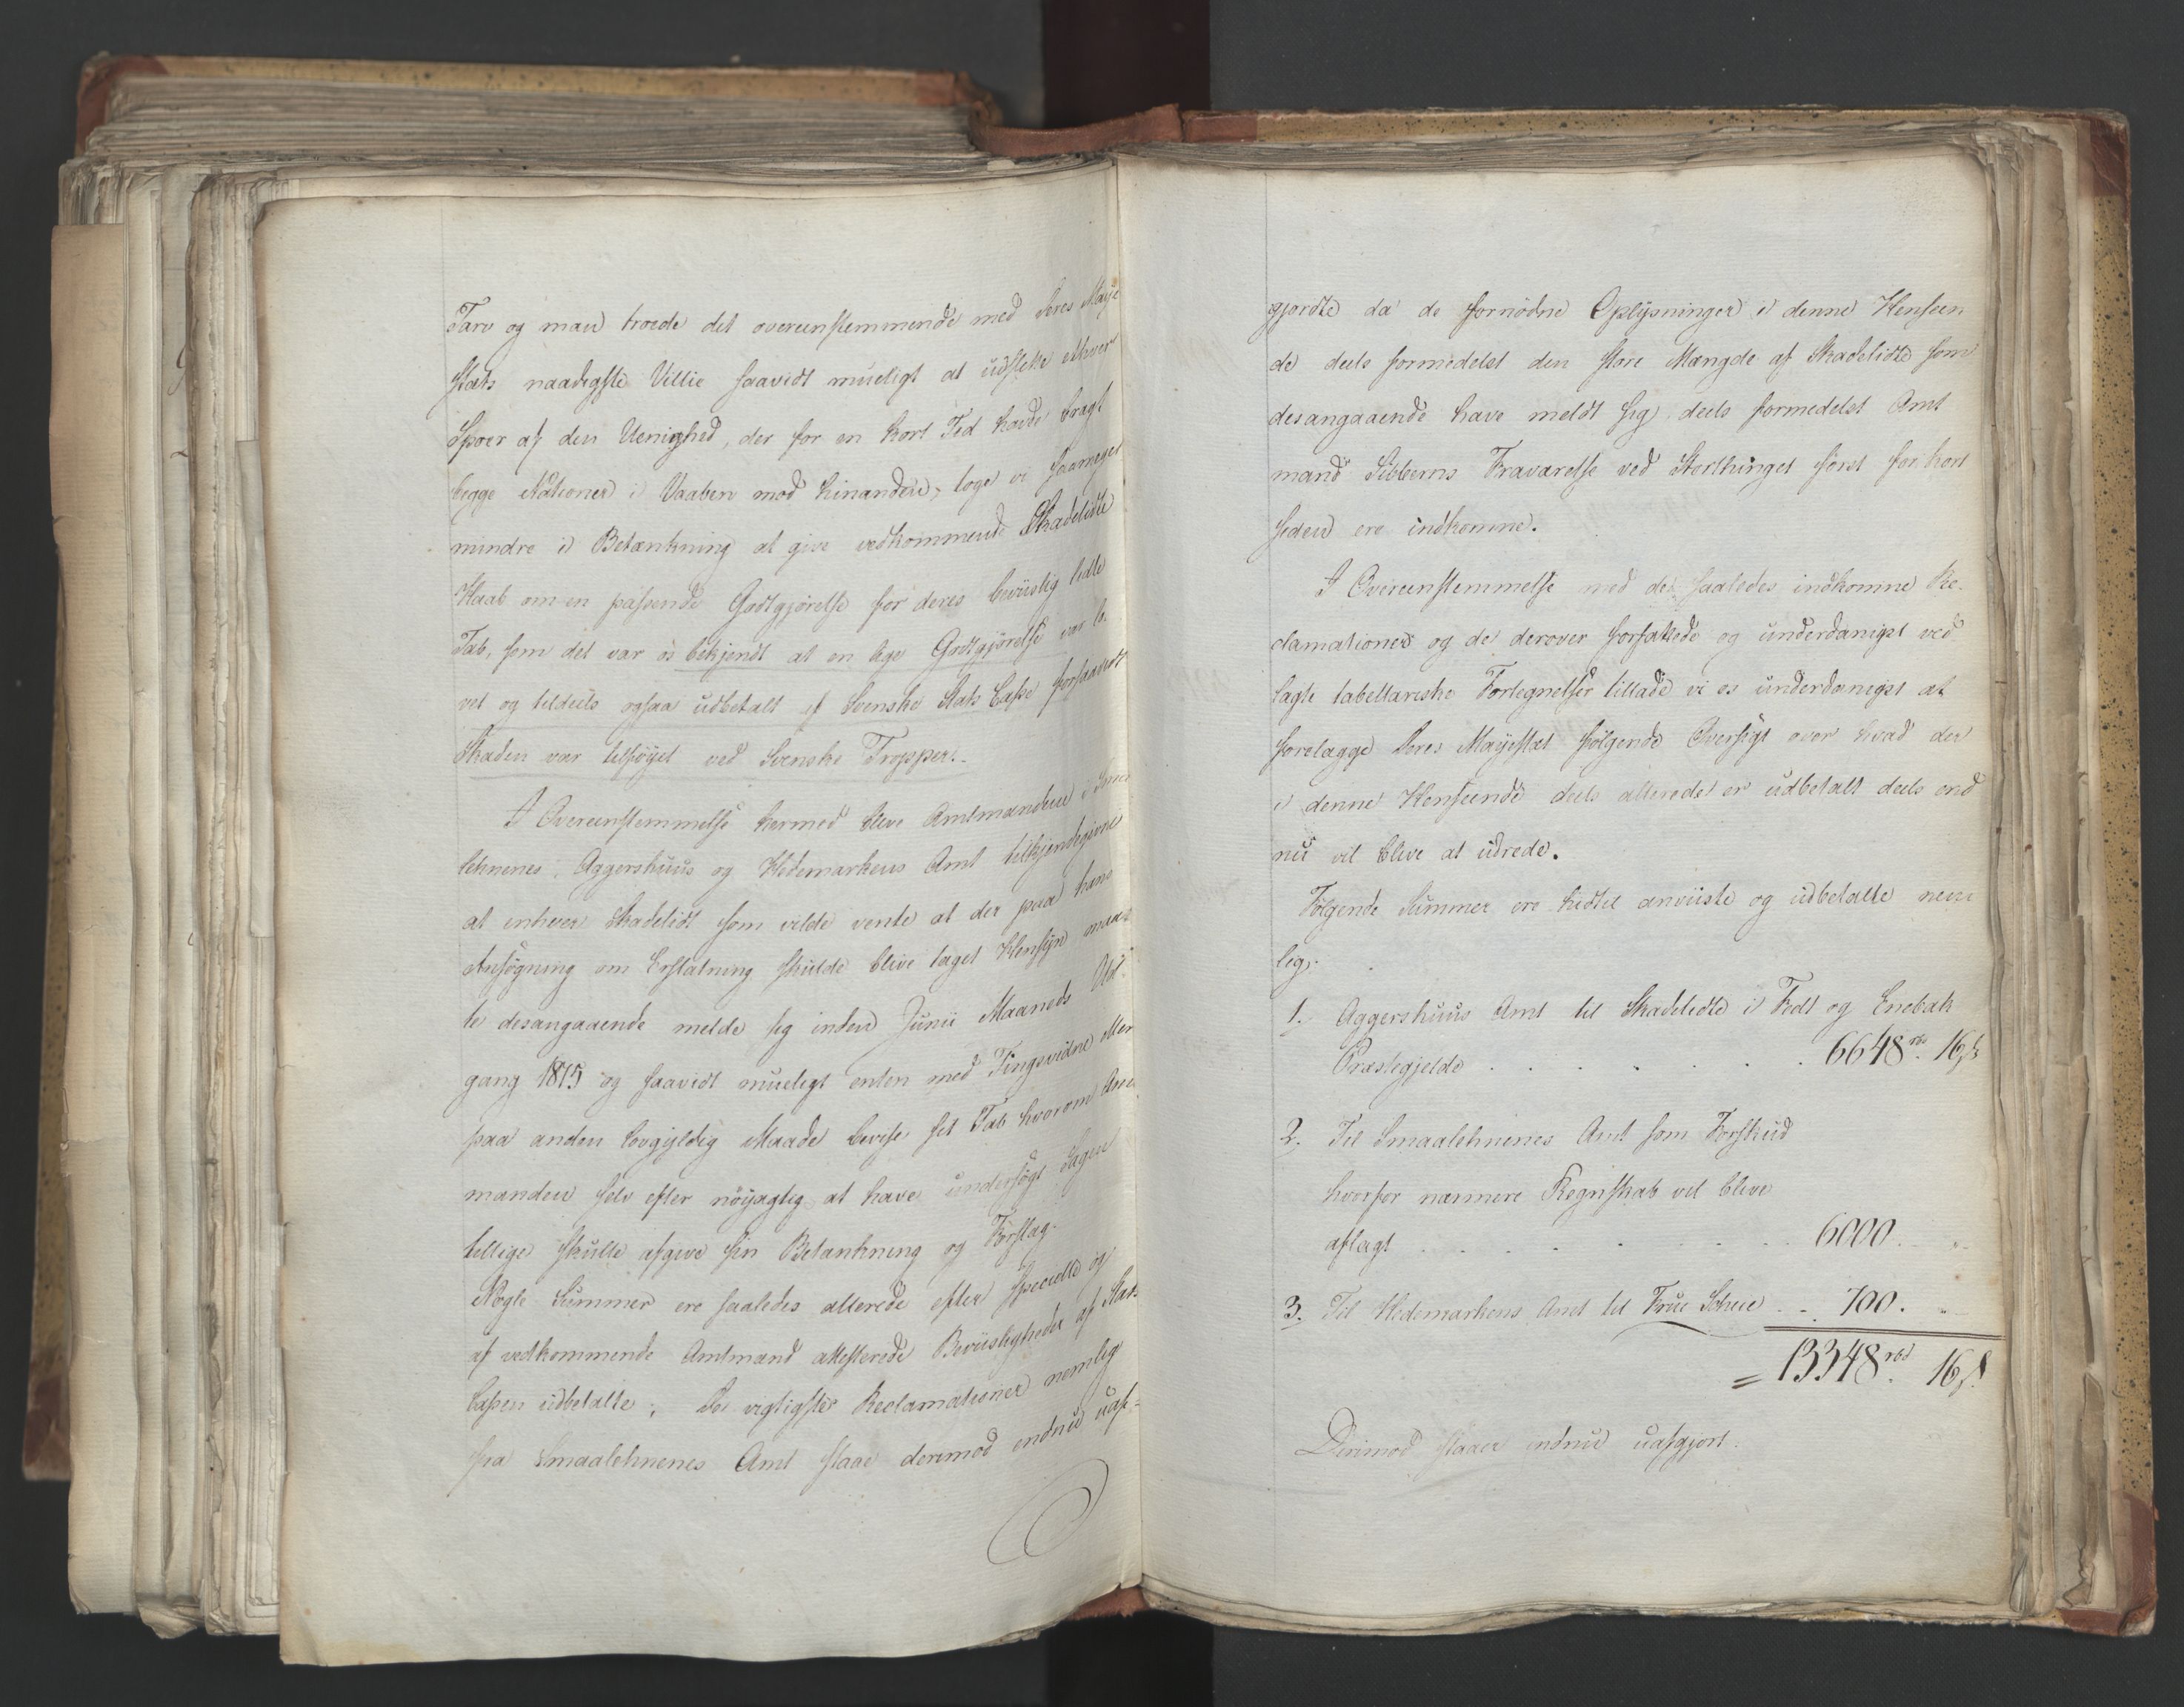 Tarv og man troede det overeensstemmende med Deres Maje
stæts naadigste Villie saavidt mueligt at udslette ethvert
Spoer af den Uenighed, der for en kort Tid havde bragt
begge Nationer i Vaaben mod hinanden, toge vi saameget
mindre i Betænkning at give vedkommende Skadelidte
Haab om en passende Godtgjørelse for deres beviislig lidte
Tab, som det var os bekjendt at en lige Godtgjørelse var lo-
vet og tildeels ogsaa udbetalt af Svenske Stats Casse forsaavidt
Skaden var tilføyet ved Svenske Tropper.
I Overeensstemmelse hermed bleve Amtmanden i Smaa
lehnenes, Aggershuus og Hedemarkens Amt tilkjendegivne
at enhver Skadelidt som vilde vente at der paa hans
Ansøgning om Erstatning skulde blive taget Hensyn maat
te desangaaende melde sig inden Junii Maaneds Ud
gang 1815 og saavidt mueligt enten med Tingsvidne eller
paa anden lovgyldig Maade bevise sit Tab hvorom Amt
manden selv efter nøyagtig at have undersøgt Sagen
tillige skulle afgive sin Betænkning og Forslag.
Nogle Summer ere saaledes allerede efter specielle og
af vedkommende Amtmand attesterede Beviisligheder af Stats
Cassen udbetalte; De vigtigste Reclamationer nemlig
fra Smaalehnenes Amt staae derimod endnu uaf-
gjordte da de fornødne Oplysninger i denne Henseen
de deels formedelst den store Mængde af Skadelidte som
desangaaende have meldt sig, deels formedelst Amt
mand Sibberns Fraværelse ved Storthinget først for kort
siden ere indkomne.
I Overeensstemmelse med de saaledes indkomne Re-
clamationer og de derover forfattede og underdanigst ved
lagte tabellariske Fortegnelser tillade vi os underdanigst at
forelægge Deres Mayestæt følgende Oversigt over hvad der
i denne Henseende deels allerede er udbetalt deels end
nu vil blive at udrede.
Følgende Summer ere hidtil anviiste og udbetalte nem
lig:
1. Aggershuus Amt til Skadelidte i Fedt og Enebak
Præstegjelde . . . . . . 6648 rbd. 16 s
2. Til Smaalehnenes Amt som Forskud
hvorfor nærmere Regnskab vil blive
aflagt . . . . . . . 6000. "
3. Til Hedemarkens Amt til Frue Scheie . . 700. "
= 13348 rbd. 16 s.
Derimod staaer endnu uafgjort: